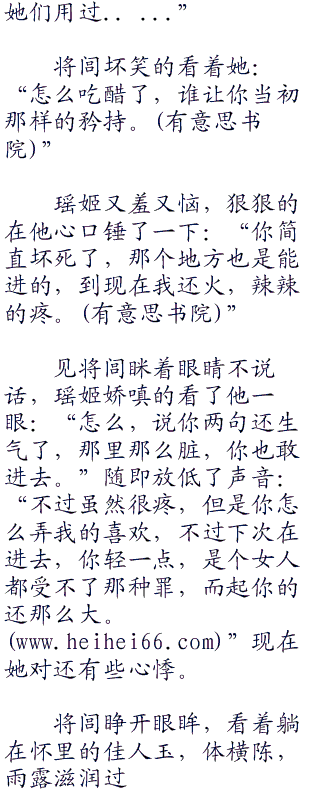 她们用过.. ...”
将闾坏笑的看着她：
“怎么吃醋了，谁让你当初
那样的矜持。(有意思书
院)”
瑶姬又羞又恼，狠狠的
在他心口锤了一下：“你简
直坏死了，那个地方也是能
进的，到现在我还火，辣辣
的疼。(有意思书院)”
见将闾眯着眼睛不说
话，瑶姬娇嗔的看了他一
眼：“怎么，说你两句还生
气了，那里那么脏，你也敢
进去。”随即放低了声音：
“不过虽然很疼，但是你怎
么弄我的喜欢，不过下次在
进去，你轻一点，是个女人
都受不了那种罪，而起你的
还那么大。
(www.heihei66.com)”现在
她对还有些心悸。
将闾睁开眼眸，看着躺
在怀里的佳人玉，体横陈，
雨露滋润过